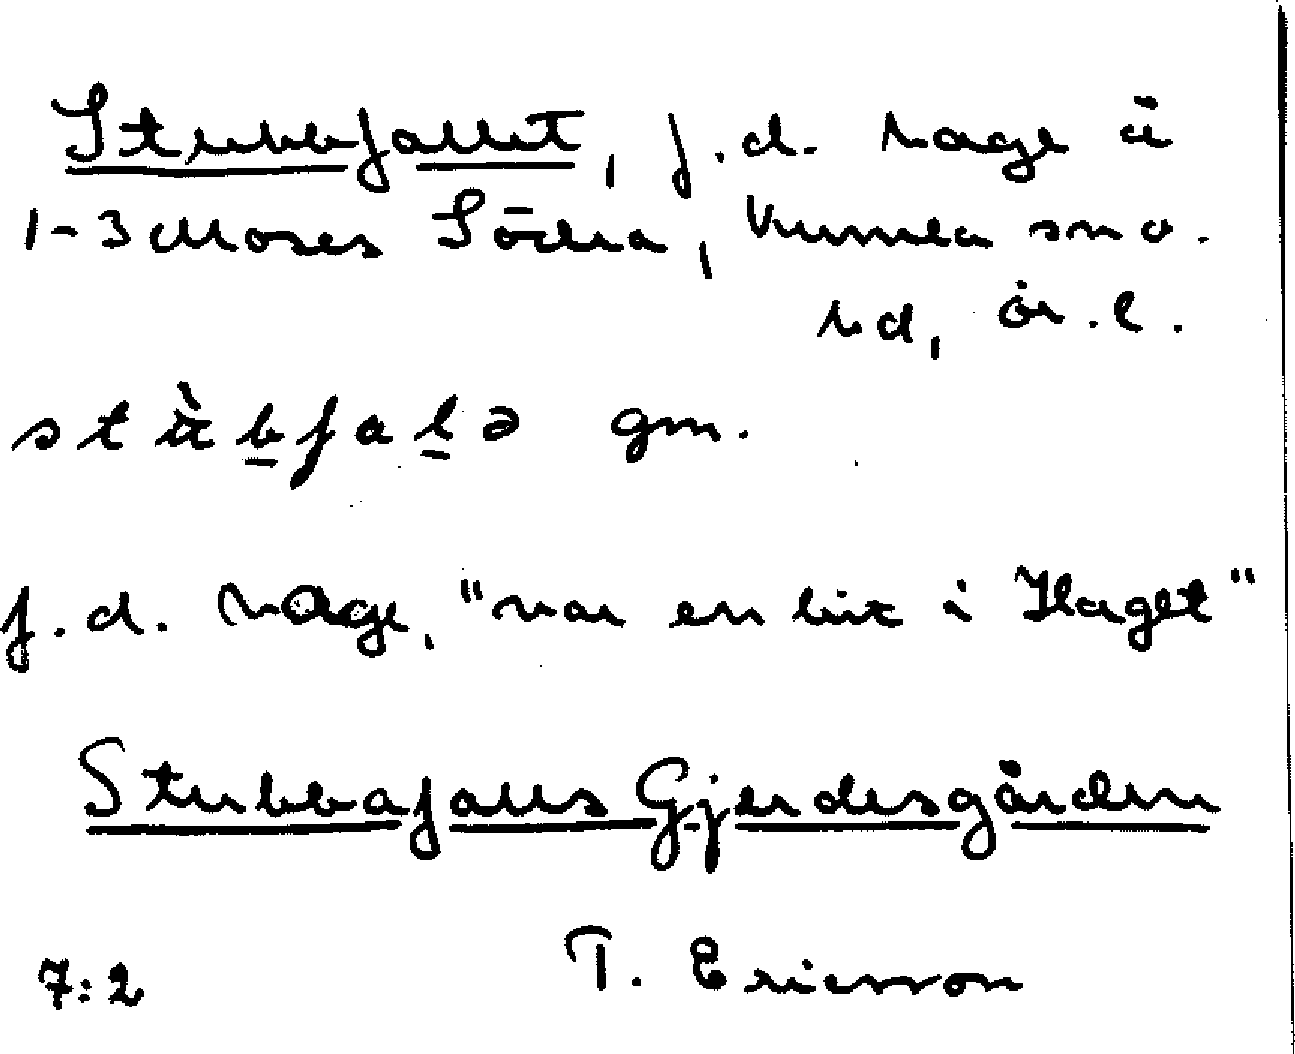 Stubbfallet, f.d. hage å
1-3 Moses Södra, Kumla sn o.
hd, ör. l.
stùbfalə gm.
f.d. hage, "var en bit i Haget"
Stubbafalls Gjerdesgården
7:2 T. Ericsson